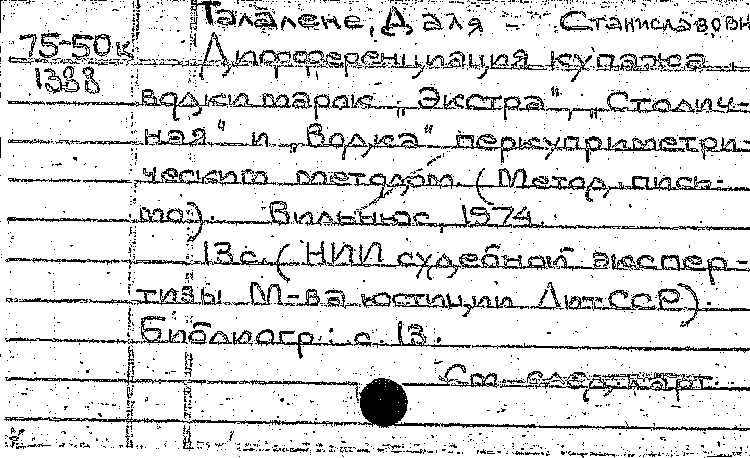 Талалене, Даля - Станиславовн
75-50к
1388
Дифференциация купажа
водки марок „Экстра“, „Столич-
ная“ и „Водка“ перкуприметри-
ческим методом. (Метод. пись-
мо). Вильнюс, 1974.
13 с. (НИИ судебной экспер-
тизы М-ва юстиции Лит.ССР).
Библиогр.: с. 13.
См. след. карт.